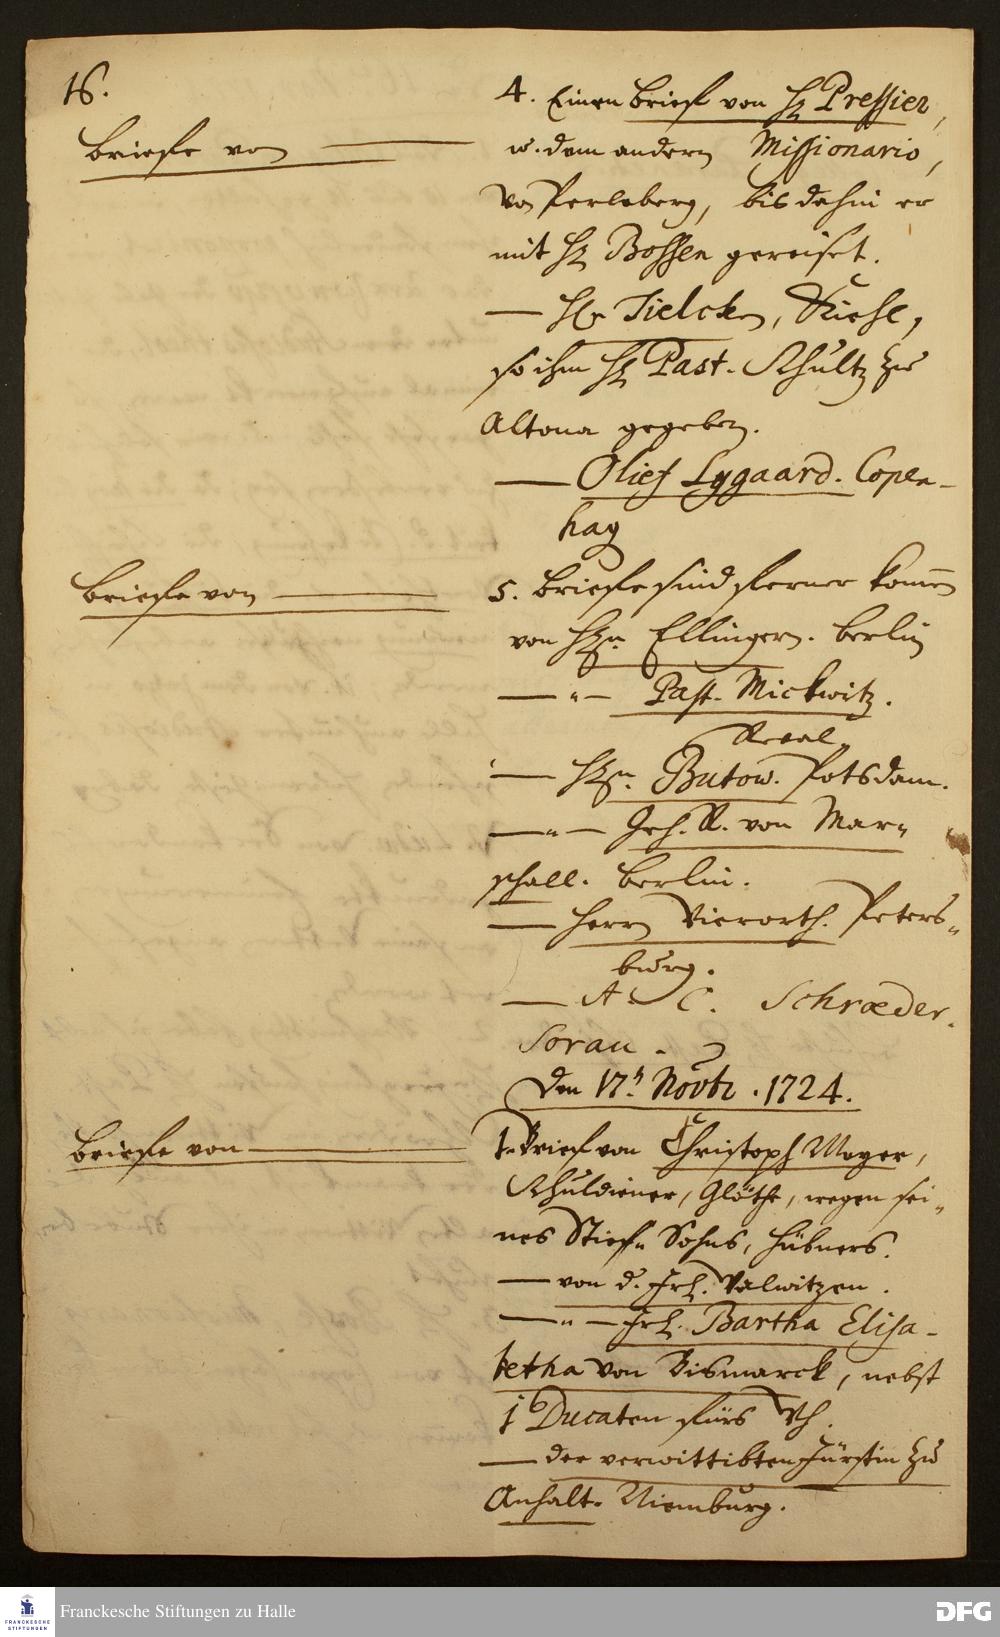 16.
Briefe von
4. Einen Brief von H. Pressier,
u. dem andern Missionario,
von Perleberg, bis dahin er
mit H. Bossen gereiset.
— H. Tielcken,
so ihm H. Past. Schultz zu
Altona gegeben.
— Olief Lygaard. Copen-
hag
Briefe von
5. Briefe sind ferner kom̄en
von H. Ellingern. Berlin
— " — Past. Mickwitz.
Reval.
— H. Butow. Potsdam.
— " — Geh. R. von Mar-
schall. Berlin.
— Herrn Vierorth. Peters-
burg.
— A. C. Schræder.
Sorau.
Den 17.h Novbr. 1724.
Briefe von
1. Brief von Christoph Mayer,
Schuldiener, Glöthe, wegen sei-
nes Stief- Sohns, Hübners.
— von d. Frl. Valwitzen.
— " — Frl. Bartha Elisa-
betha von Bismarck, nebst
1 Ducaten fürs Wh.
— der verwittibten Fürstin zu
Anhalt. Niemburg.
Franckesche Stiftungen zu Halle
FRANCKESCHE
STIFTUNGEN
DFG